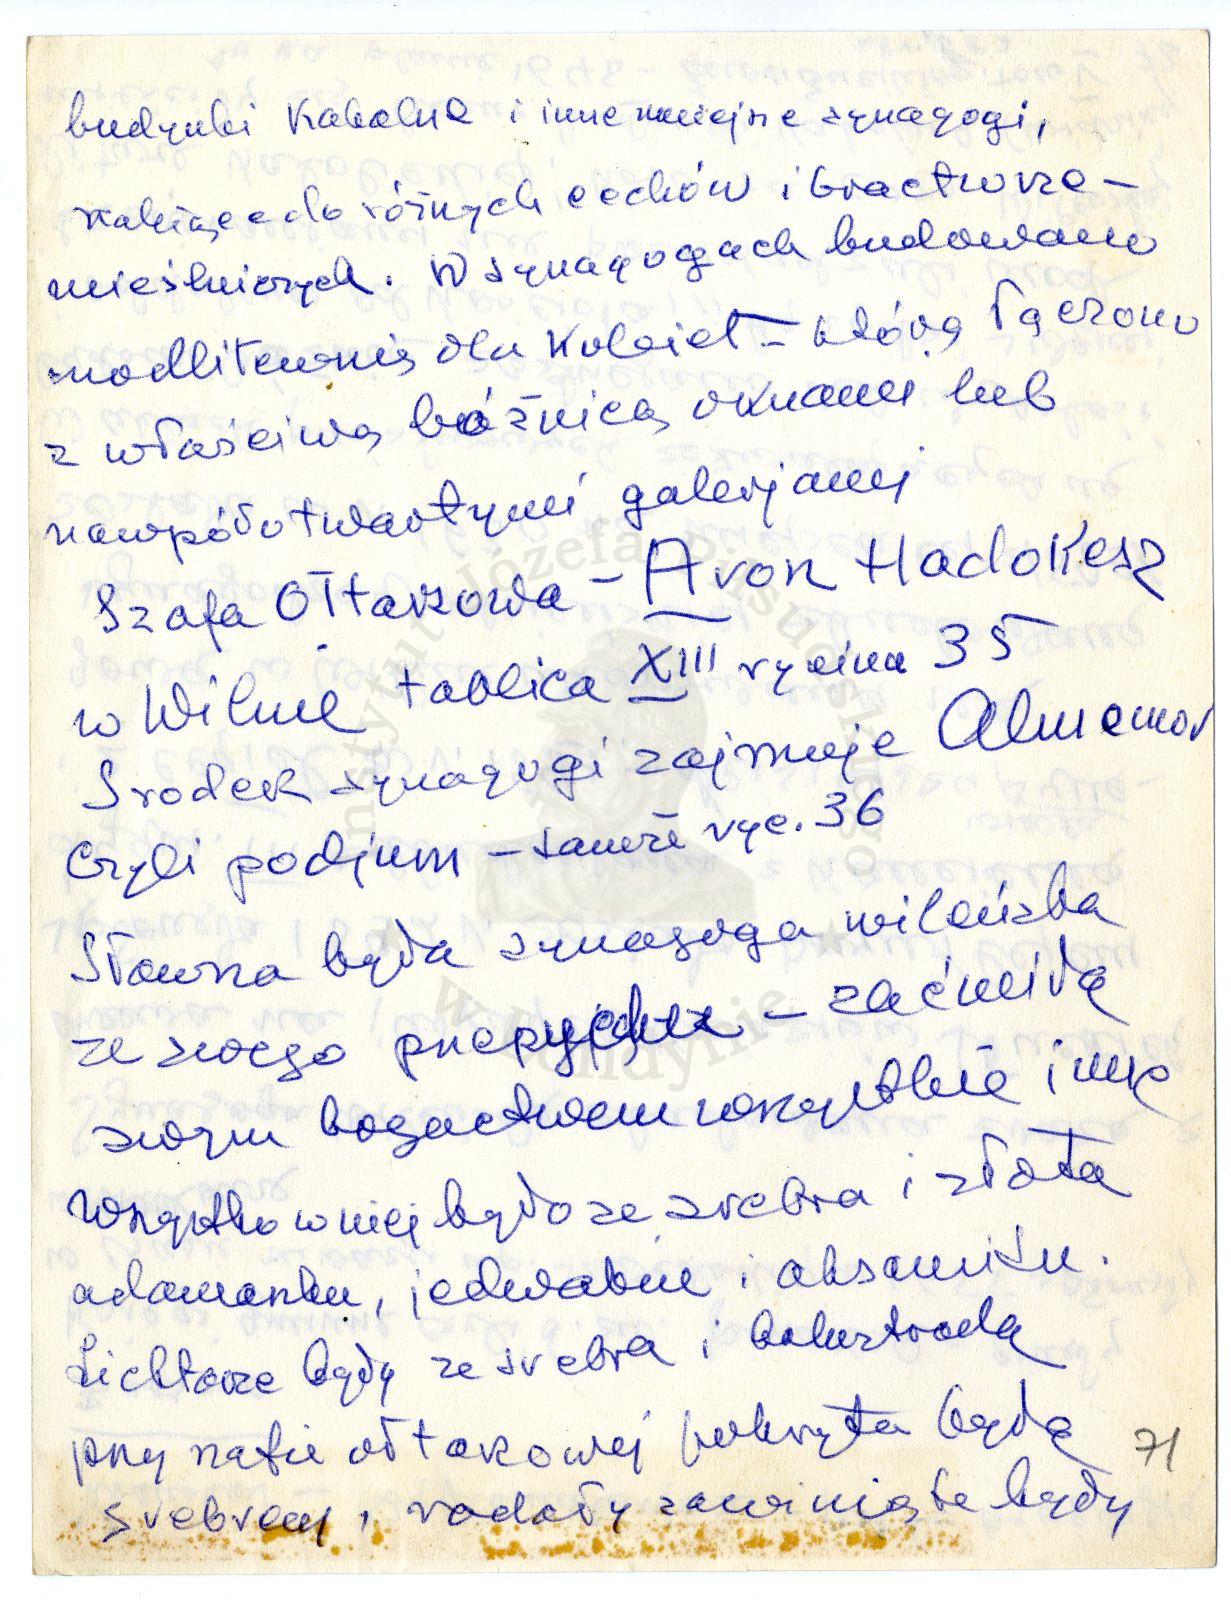 budynki Kahalne i inne mniejsze synagogi,
należące do różnych cechów i bractw rze-
mieślniczych. W synagogach budowano
modlitewnię dla kobiet – którą łączono
z właściwą bóźnicą oknami lub
nawpółotwartymi galerjami
Szafa Ołtarzowa – Aron Hadokesz
w Wilnie tablica XIII rycina 35
Srodek synagogi zajmuje Almemor
czyli podjum – tamże ryc. 36
Sławna była synagoga wileńska
ze swego przepychu – zaćmiła
swym bogactwem wszystkie inne
Wszystko w niej było ze srebra i złota
adamaszku, jedwabiu i aksamitu.
Lichtarze były ze srebra i balustrada
przy szafie ołtarzowej pokryta była
srebrem, rodały zawinięte były
71
Instytut Józefa Piłsudskiego
w Londynie